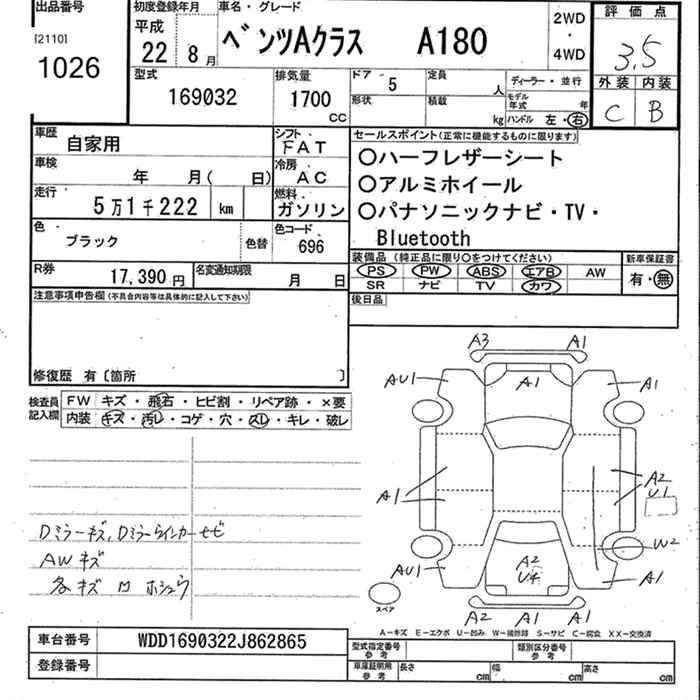 出品番号
[2110]
1026
初度登録年月
平成
22 8月
車名・グレード
ベンツAクラス A180
2WD
・
4WD
評価点
3.5
外装 内装
C B
型式
169032
排気量
1700
cc
ドア 5
形状
定員 人
積載 kg
ディーラー・並行
モデル年式 年
ハンドル 左・右
車歴
自家用
シフト
FAT
車検
年 月( 日)
冷房
AC
走行
5万1千222 km
燃料
ガソリン
色
ブラック
色替
色コード
696
R券
17,390円
名変通知期限
月 日
セールスポイント(正常に機能するものに限ります)
○ハーフレザーシート
○アルミホイール
○パナソニックナビ・TV・
Bluetooth
装備品(純正品に限り○をつけてください)
PS PW ABS エアB AW
SR ナビ TV カワ
新車保証書
有・無
後日品
注意事項申告欄(不具合内容等は具体的に記入して下さい)
修復歴 有〔箇所 〕
検査員
記入欄
FW キズ・飛石・ヒビ割・リペア跡・×要
内装 キズ・汚レ・コゲ・穴・スレ・キレ・破レ
Dミラーキズ、Dミラーウインカーサビ
AWキズ
各キズ
A3 A1
AU1 A1 A1
A1
A2
U1
W2
AU1 A2
U4 A1
A2 A1 A1
スペア
A−キズ E−エクボ U−凹み W−補修跡 S−サビ C−腐食 XX−交換済
車台番号
WDD1690322J862865
登録番号
型式指定番号
参考
類別区分番号
参考
車庫証明用
参考
長さ cm
幅 cm
高さ cm